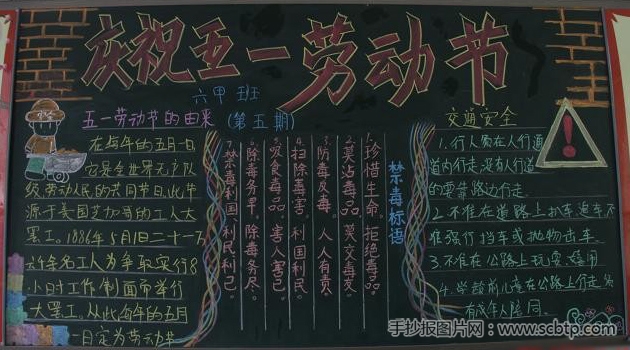 庆祝五一劳动节
六甲班
五一劳动节的由来
(第五期)
在每年的五月一日
它是全世界无产队
级劳动人民的共同节日,此节
源于美国芝加哥的工人大
罢工。1886年5月1日二十一万
六千余名工人为争取实行8
小时工作制而举行
大罢工。从此每年的五月
一日定为劳动节
禁毒标语
1.珍惜生命,拒绝毒品。
2.莫沾毒品,莫交毒友。
3.防毒反毒,人人有责。
4.扫除毒害,利国利民。
5.吸食毒品,害人害己。
6.除毒务早,除毒务尽。
7.禁毒利国、利民利己。
交通安全
1.行人须在人行道
道内行走,没有人行道
的要靠路边行走
2.不准在道路上扒车、追车、不
准强行拦车或抛物击车。
3.不准在公路上玩耍、嬉闹
4.学龄前儿童在公路上行走
有成年人陪同。
手抄报图片网:www.scbtp.com